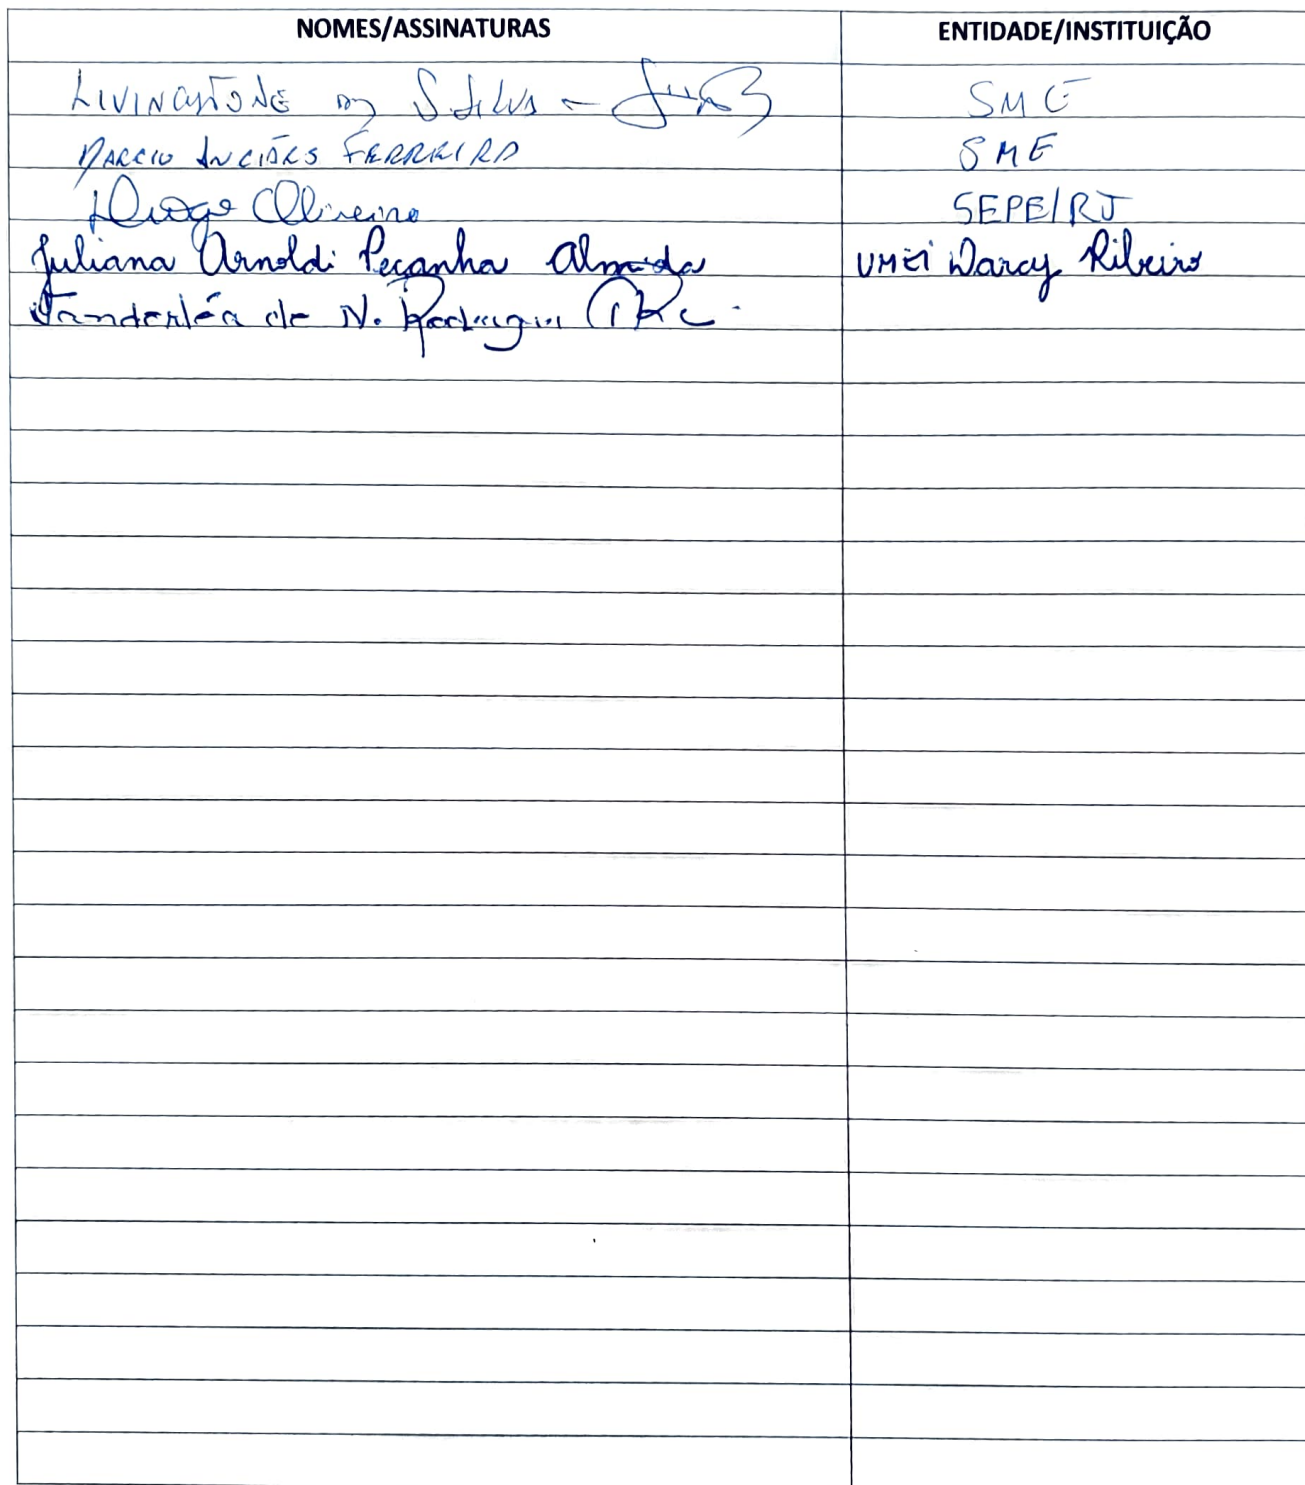 NOMES/ASSINATURAS ENTIDADE/INSTITUIÇÃO
LIVINGSTONE S. SILVA - SME
MARCIO FERREIRA SME
Diogo Oliveira SEPE/RJ
Juliana Arnoldi Peçanha Almeida UMEI Darcy Ribeiro
de N. Rodrigues